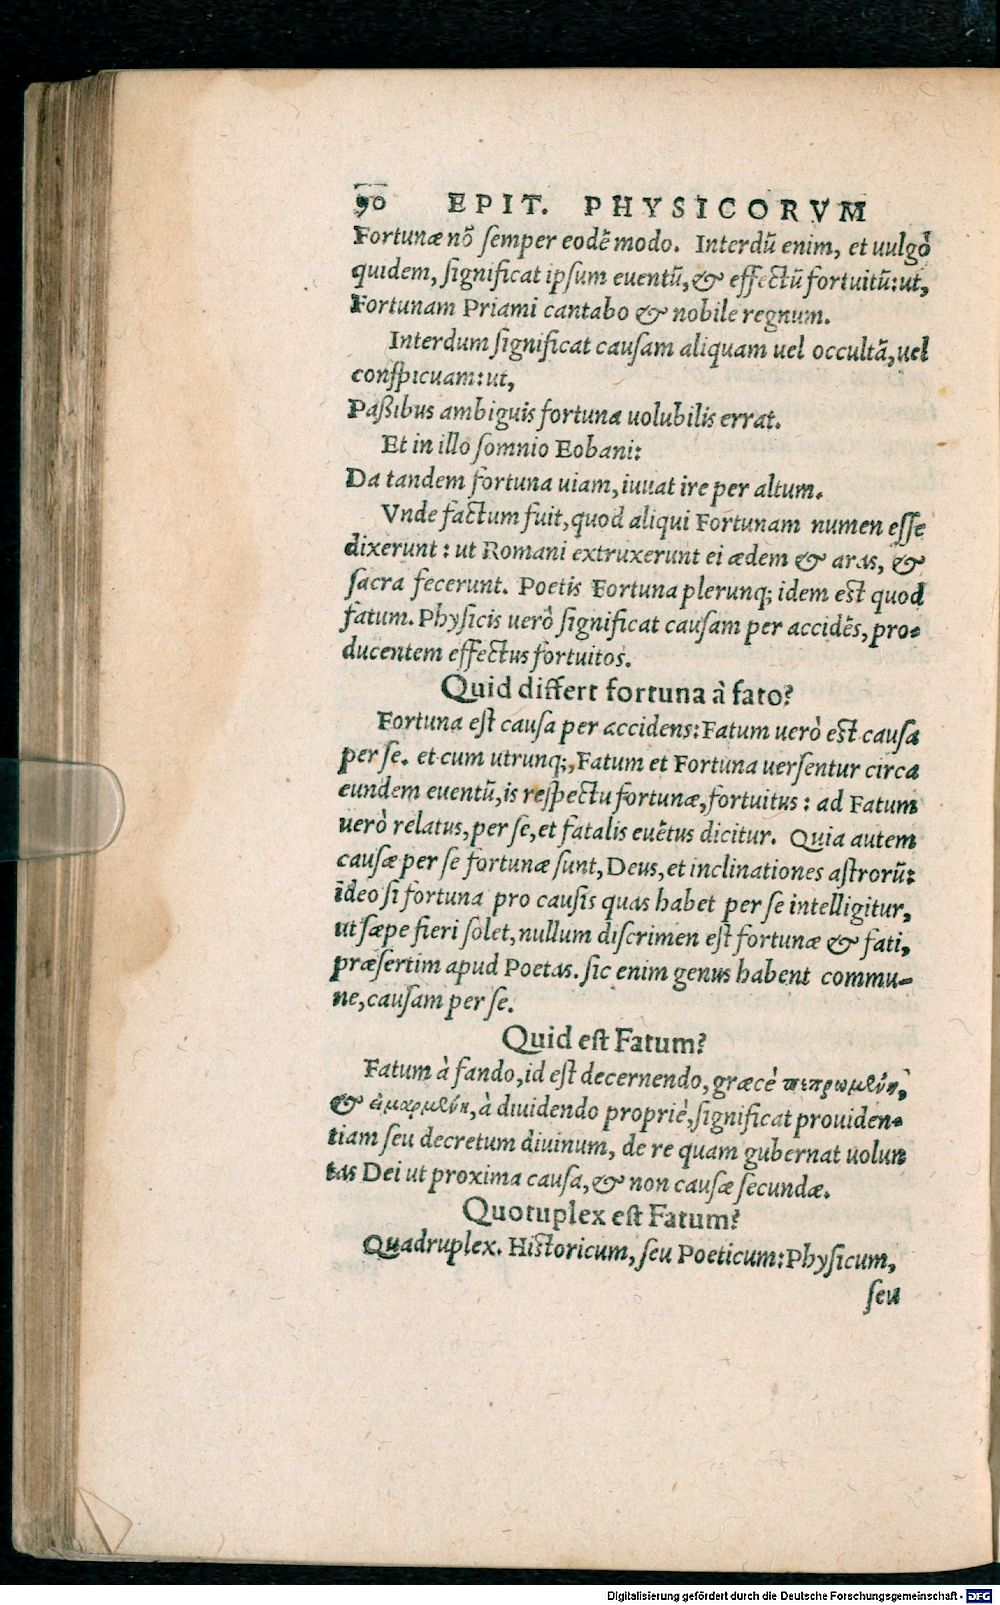 90 EPIT. PHYSICORVM
Fortunæ nõ ſemper eodẽ modo. Interdũ enim, et uulgò
quidem, ſignificat ipſum euentũ, & effectũ fortuitũ: ut,
Fortunam Priami cantabo & nobile regnum.
Interdum ſignificat cauſam aliquam uel occultã, uel
conſpicuam: ut,
Paßibus ambiguis fortuna uolubilis errat.
Et in illo ſomnio Eobani:
Da tandem fortuna uiam, iuuat ire per altum.
Vnde factum fuit, quod aliqui Fortunam numen eſſe
dixerunt: ut Romani extruxerunt ei ædem & aras, &
ſacra fecerunt. Poetis Fortuna plerunq; idem est quod
fatum. Phyſicis uerò ſignificat cauſam per accidẽs, pro-
ducentem effectus fortuitos.
Quid differt fortuna à fato?
Fortuna eſt cauſa per accidens: Fatum uerò est cauſa
per ſe. et cum utrunq;, Fatum et Fortuna uerſentur circa
eundem euentũ, is reſpectu fortunæ, fortuitus: ad Fatum
uerò relatus, per ſe, et fatalis euẽtus dicitur. Quia autem
cauſæ per ſe fortunæ ſunt, Deus, et inclinationes aſtrorũ:
ideo ſi fortuna pro cauſis quas habet per ſe intelligitur,
ut ſæpe fieri ſolet, nullum diſcrimen eſt fortunæ & fati,
præſertim apud Poetas. ſic enim genus habent commu-
ne, cauſam per ſe.
Quid eſt Fatum?
Fatum à fando, id eſt decernendo, græcè πεπρωμένη,
& εἱμαρμένη, à diuidendo propriè, ſignificat prouiden-
tiam ſeu decretum diuinum, de re quam gubernat uolun
tas Dei ut proxima cauſa, & non cauſæ ſecundæ.
Quotuplex eſt Fatum?
Quadruplex. Historicum, ſeu Poeticum: Phyſicum,
ſeu
Digitalisierung gefördert durch die Deutsche Forschungsgemeinschaft - DFG